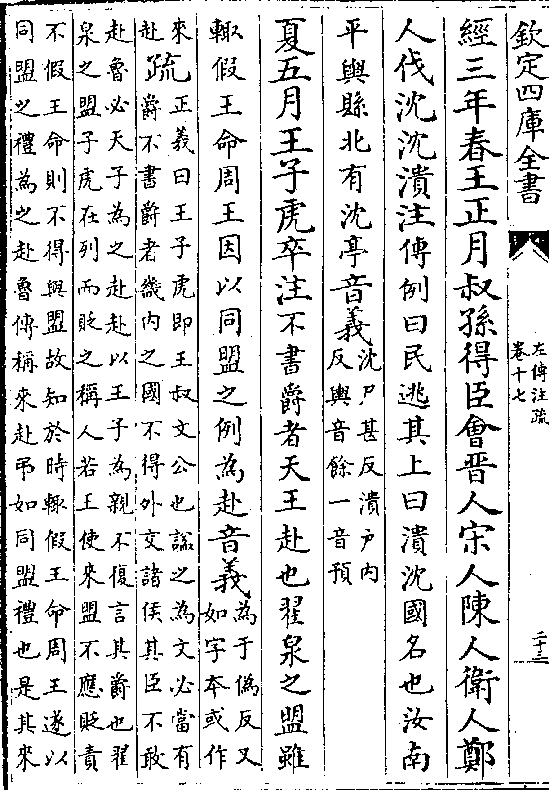 欽定四庫全書
左傳注疏
卷十七
二十三
經三年春王正月叔孫得臣會晋人宋人陳人衛人鄭
人伐沈沈潰注傳例曰民逃其上曰潰沈國名也汝南
平輿縣北有沈亭音義沈尸甚反潰户内
反輿音餘一音預
夏五月王子虎卒注不書爵者天王赴也翟泉之盟雖
輙假王命周王因以同盟之例為赴音義為于偽反又
如字本或作
來
赴疏正義曰王子虎即王叔文公也諡之為文必當有
爵不書爵者畿内之國不得外交諸侯其臣不敢
赴魯必天子為之赴赴以王子為親不復言其爵也翟
泉之盟子虎在列而貶之稱人若王使來盟不應貶責
不假王命則不得與盟故知於時輙假王命周王遂以
同盟之禮為之赴魯傳稱來赴弔如同盟禮也是其來